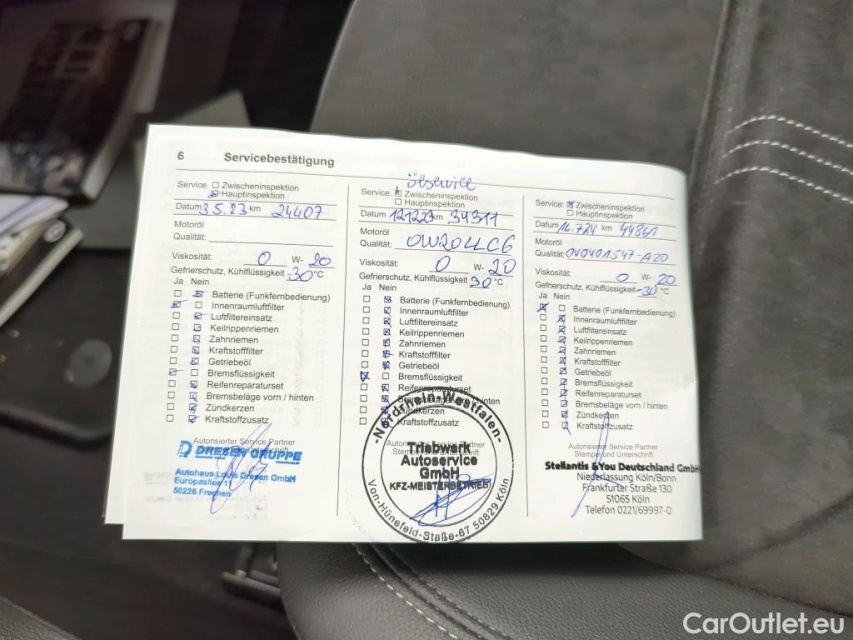 6 Servicebestätigung
Service: Zwischeninspektion
Hauptinspektion
Datum 3.5.23 km 24407
Motoröl
Qualität:
Viskosität: 0 W- 20
Gefrierschutz, Kühlflüssigkeit -30 °C
Ja Nein
Batterie (Funkfernbedienung)
Innenraumluftfilter
Luftfiltereinsatz
Keilrippenriemen
Zahnriemen
Kraftstofffilter
Getriebeöl
Bremsflüssigkeit
Reifenreparaturset
Bremsbeläge vorn / hinten
Zündkerzen
Kraftstoffzusatz
Autorisierter Service Partner
DRESEN GRUPPE
Autohaus Louis Dresen GmbH
50226 Frechen
Ölservice
Service: Zwischeninspektion
Hauptinspektion
Datum 12.12.23 km 34311
Motoröl
Qualität: 0W20LLC6
Viskosität: 0 W- 20
Gefrierschutz, Kühlflüssigkeit 30 °C
Ja Nein
Batterie (Funkfernbedienung)
Innenraumluftfilter
Luftfiltereinsatz
Keilrippenriemen
Zahnriemen
Kraftstofffilter
Getriebeöl
Bremsflüssigkeit
Reifenreparaturset
Bremsbeläge vorn / hinten
Zündkerzen
Kraftstoffzusatz
-Nordrhein-Westfalen-
Triebwerk
Autoservice
GmbH
KFZ-MEISTERBETRIEB
Von-Hünefeld-Staße-67 50829 Köln
Service: Zwischeninspektion
Hauptinspektion
Datum 16.7.24 km
Motoröl
Qualität: 0V0401547-A20
Viskosität: 0 W- 20
Gefrierschutz, Kühlflüssigkeit -30 °C
Ja Nein
Batterie (Funkfernbedienung)
Innenraumluftfilter
Luftfiltereinsatz
Keilrippenriemen
Zahnriemen
Kraftstofffilter
Getriebeöl
Bremsflüssigkeit
Reifenreparaturset
Bremsbeläge vorn / hinten
Zündkerzen
Kraftstoffzusatz
Autorisierter Service Partner
Stempel und Unterschrift
Stellantis &You Deutschland GmbH
Niederlassung Köln/Bonn
Frankfurter Straße 130
51065 Köln
Telefon 0221/69997-0
CarOutlet.eu